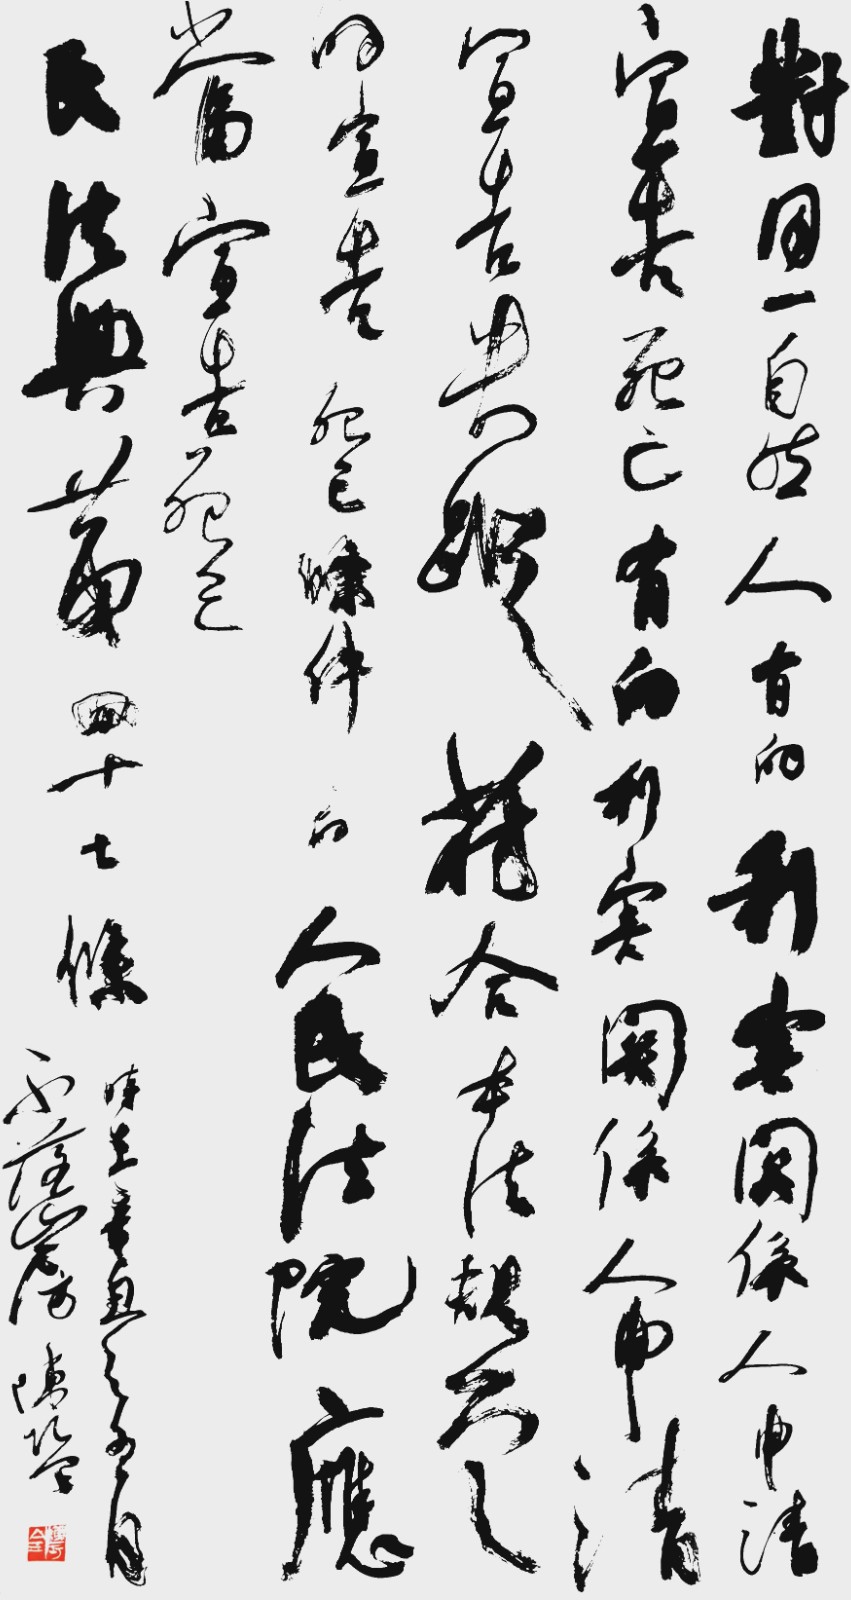 對同一自然人有的利害關係人申請
宣告死亡有的利害關係人申請
宣告失蹤符合本法規定
的宣告死亡條件的人民法院應
當宣告死亡
民法典第四十七條
時在辛丑之月
山房陳